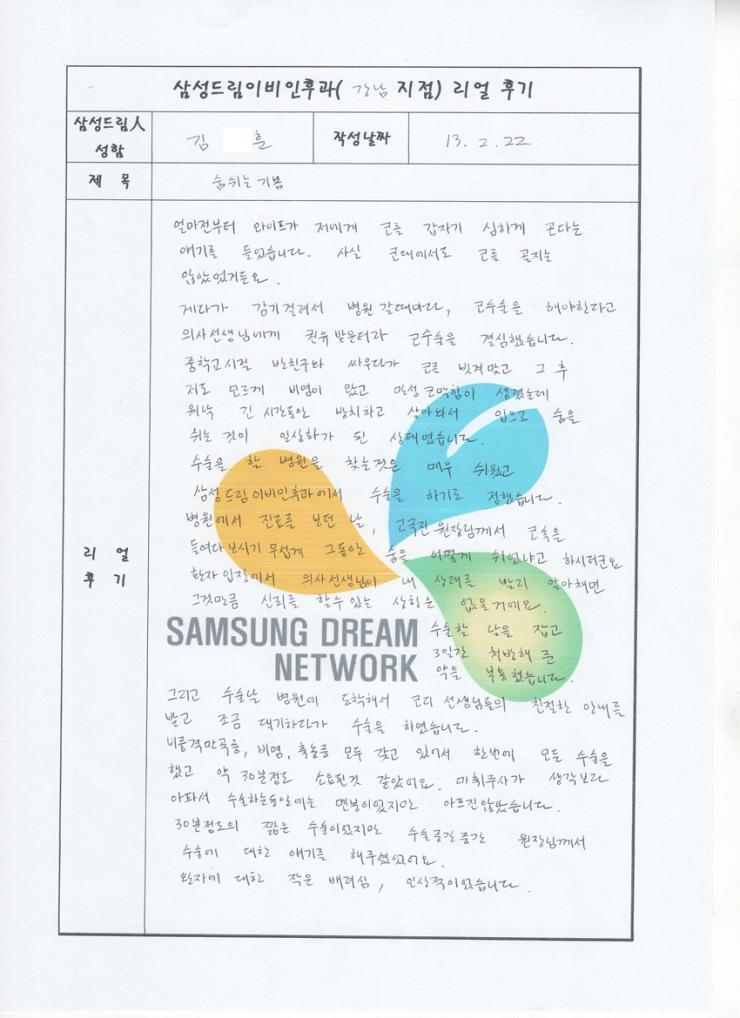 삼성드림이비인후과( 강남 지점) 리얼 후기
삼성드림人 성함
김 훈
작성날짜
13. 2. 22
제 목
숨쉬는 기쁨
리 얼
후 기
얼마전부터 와이프가 저에게 코를 갑자기 심하게 곤다는
얘기를 들었습니다. 사실 군대에서도 코를 골지는
않았었거든요.
게다가 감기걸려서 병원 갈때마다, 코수술을 해야한다고
의사선생님에게 권유 받은터라 코수술을 결심했습니다.
중학교시절 반친구와 싸우다가 코를 빗겨맞고 그 후
저도 모르게 비염이 왔고 만성 코막힘이 생겼는데
워낙 긴 시간동안 방치하고 살아와서 입으로 숨을
쉬는 것이 일상화가 된 상태였습니다.
수술을 할 병원을 찾는것은 매우 쉬웠고
삼성드림이비인후과에서 수술을 하기로 정했습니다.
병원에서 진료를 보던 날, 고국진 원장님께서 코속을
들여다 보시기 무섭게 그동안 숨을 어떻게 쉬었냐고 하시더군요
환자입장에서 의사선생님이 내 상태를 빨리 알아채면
그것만큼 신뢰를 할수있는 상황은 없을거에요.
SAMSUNG DREAM
NETWORK
수술할 날을 잡고
3일간 처방해 준
약을 복용했습니다.
그리고 수술날 병원에 도착해서 코디 선생님들의 친절한 안내를
받고 조금 대기하다가 수술을 하였습니다.
비중격만곡증, 비염, 축농증 모두 갖고 있어서 한번에 모든 수술을
했고 약 30분정도 소요된것 같았어요. 마취주사가 생각보다
아파서 수술하는동안에는 멘붕이었지만 아프진않았습니다.
30분정도의 짧은 수술이었지만 수술중간중간 원장님께서
수술에 대한 얘기를 해주셨었어요.
환자에 대한 작은 배려심, 인상적이었습니다.